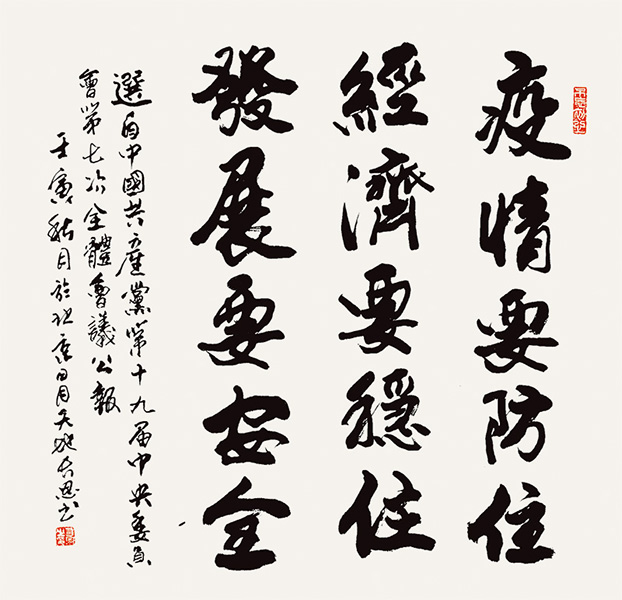 疫情要防住
經濟要穩住
發展要安全
選自中國共產黨第十九屆中央委員
會第七次全體會議公報
壬寅秋月於北京日月天地